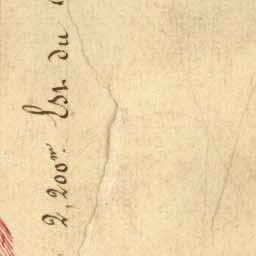 2,200m. Est du